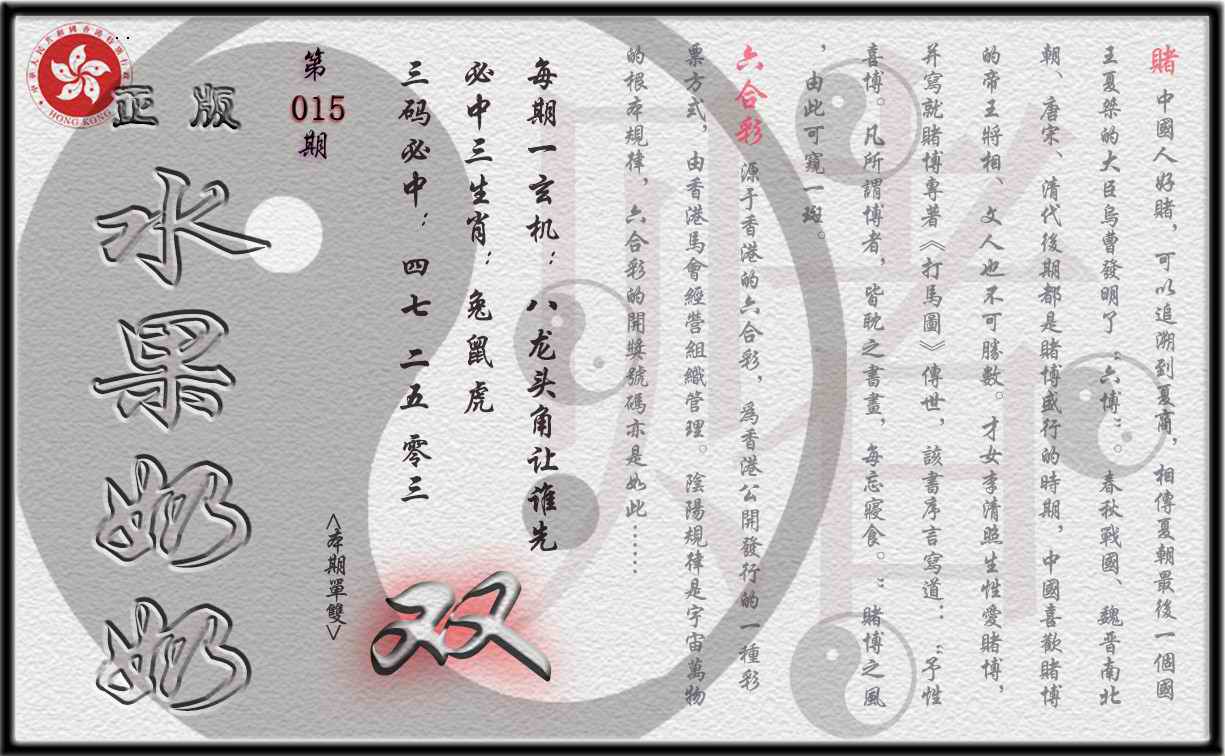 賭 中國人好賭，可以追溯到夏商，相傳夏朝最後一個國
王夏桀的大臣烏曹發明了“六博”。春秋戰國、魏晋南北
朝、唐宋、清代後期都是賭博盛行的時期，中國喜歡賭博
的帝王將相、文人也不可勝數。才女李清照生性愛賭博，
并寫就賭博專著《打馬圖》傳世，該書序言寫道：“予性
喜博。凡所謂博者，皆耽之書畫，每忘寢食。”賭博之風
，由此可窺一斑。
六合彩 源于香港的六合彩，爲香港公開發行的一種彩
票方式，由香港馬會經營組織管理。陰陽規律是宇宙萬物
的根本規律，六合彩的開獎號碼亦是如此……
每期一玄机：八龙头角让谁先
必中三生肖：兔鼠虎
三码必中：四七 二五 零三
<本期單雙>
双
第
015
期
正版
水果奶奶
中華人民共和國香港特別行政區
HONG KONG